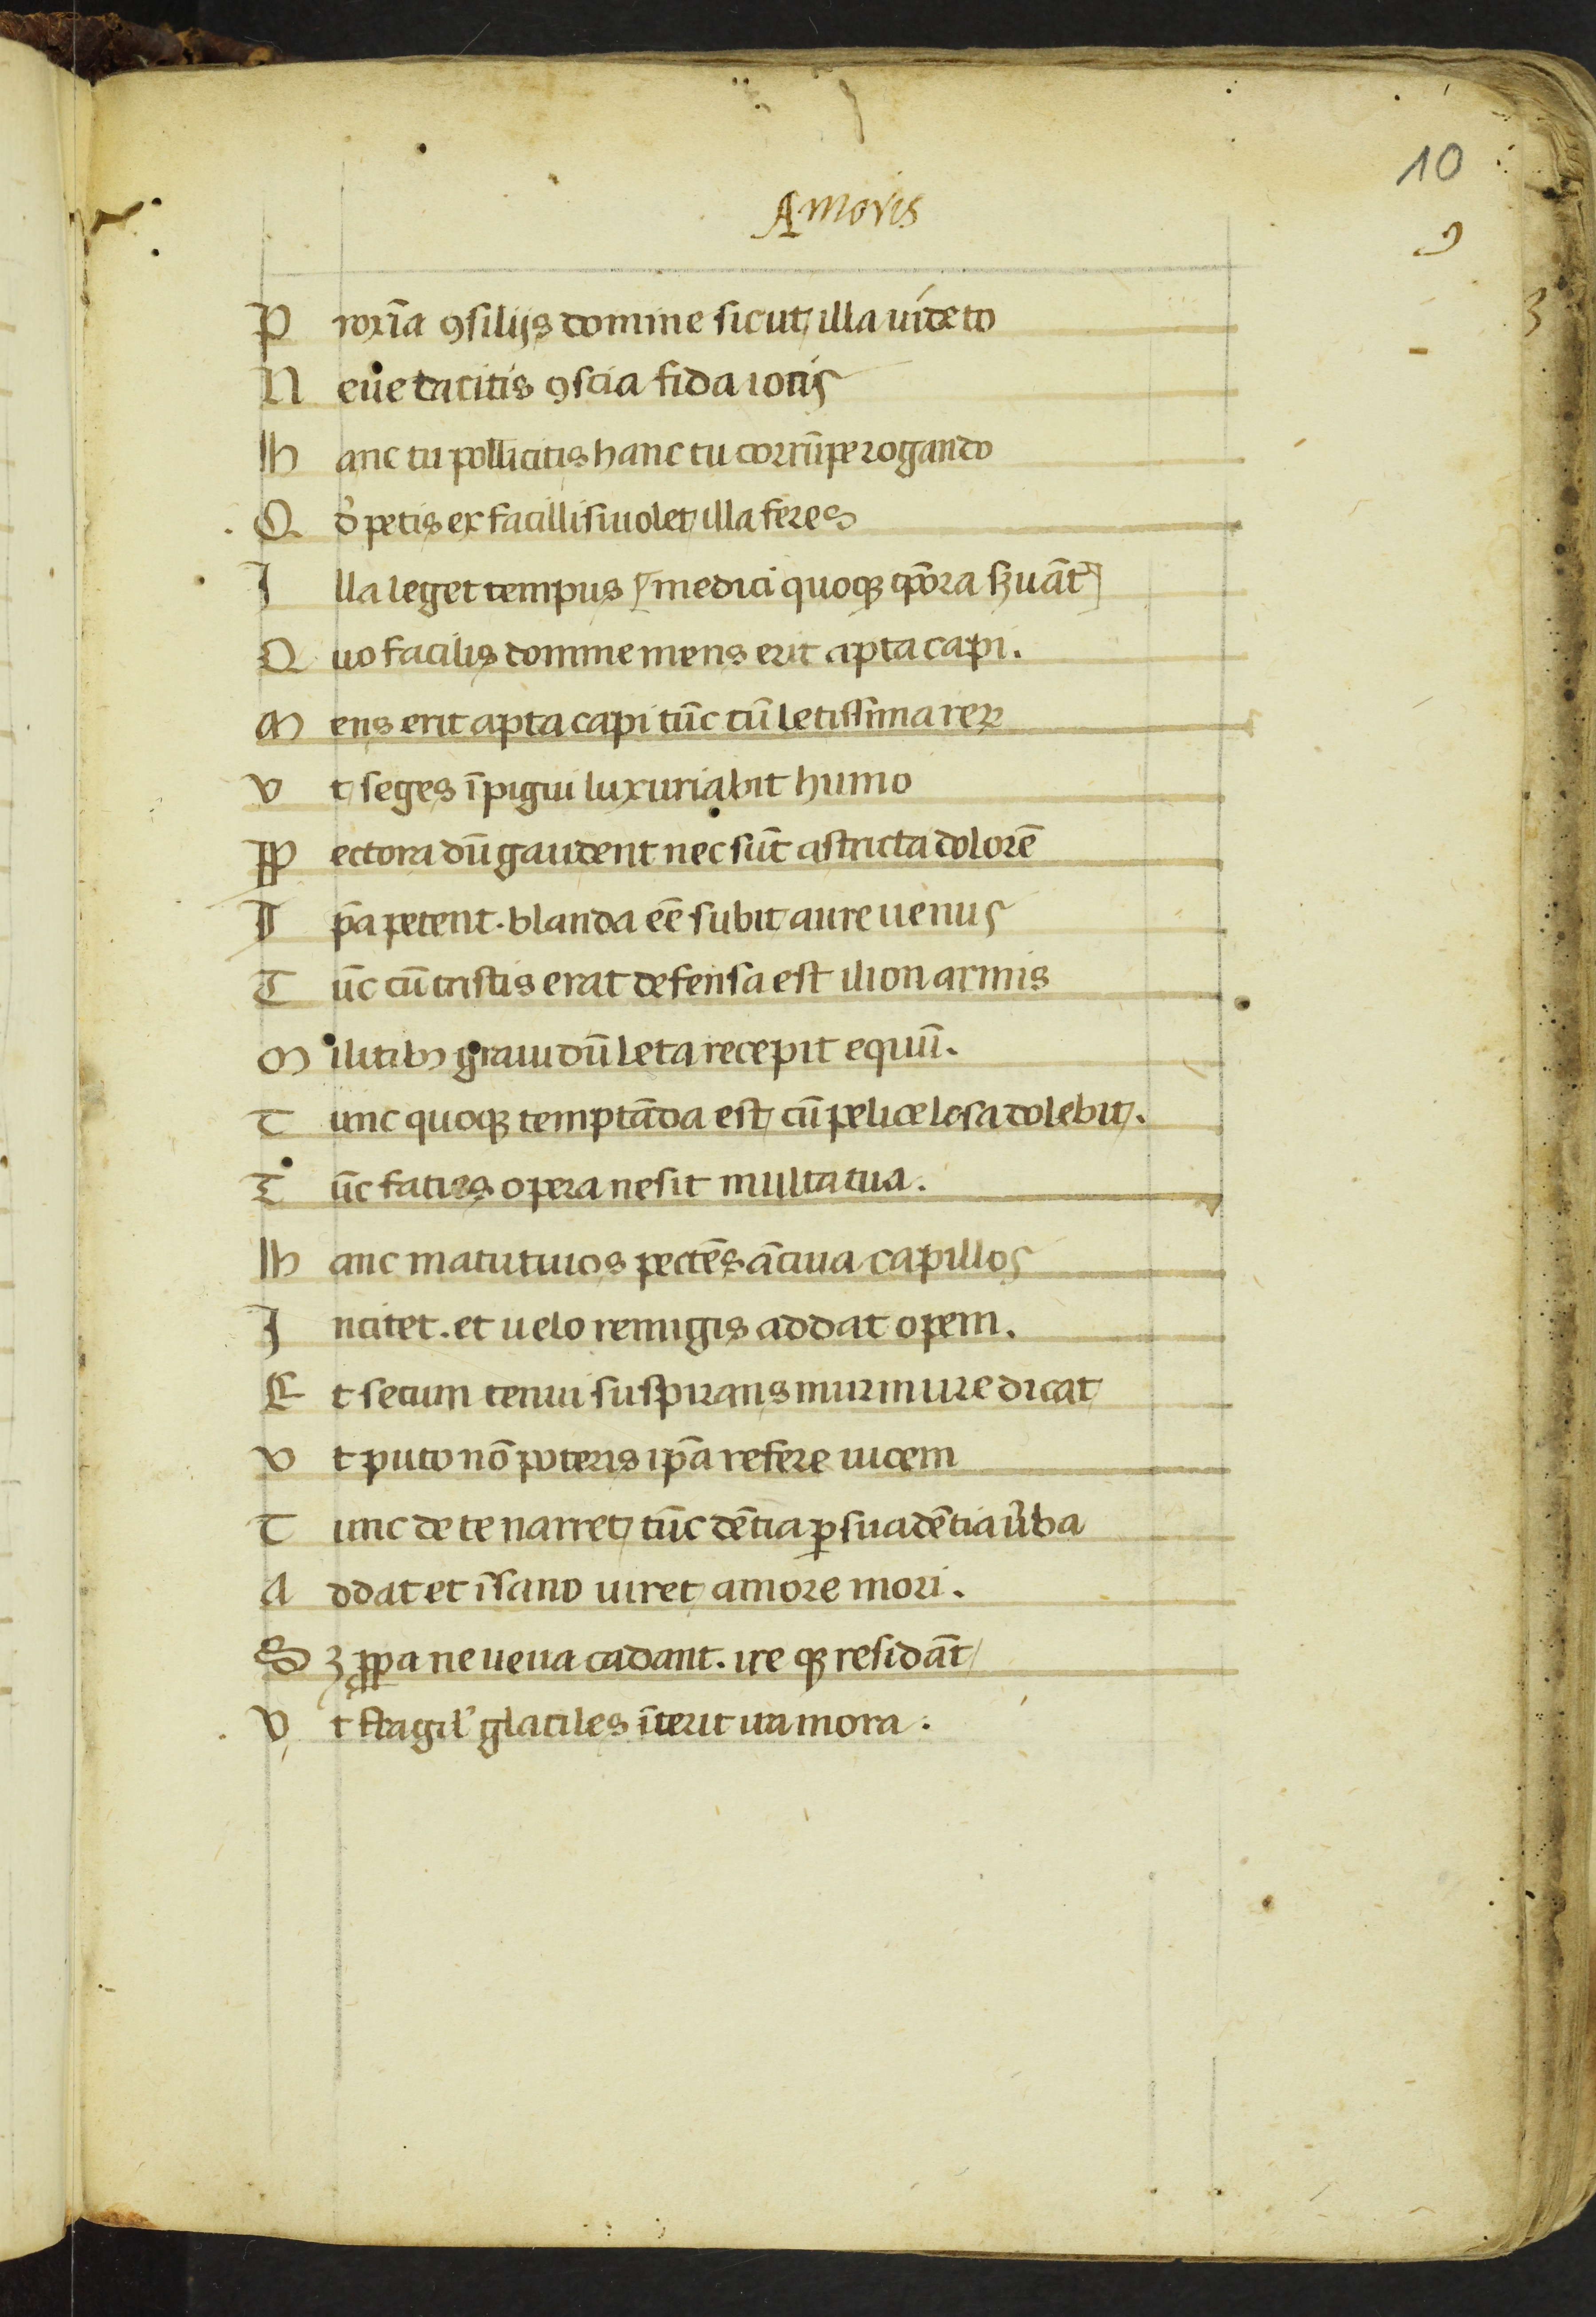 10
Amoris
9
P roxīa ꝯsilijs domine sicut illa uideto
N eue tacitis ꝯscia fida iocis
H anc tu pollicitis hanc tu corrūpe rogando
Q d̓ petis ex facilli si uolet illa feres
I lla leget tempus medici quoqꝫ tp̄ora ẜuāt
Q uo facilis domine mens erit apta capi.
M ens erit apta capi tūc cū letissima reꝝ
V t seges ī pigui luxuriabit humo
P ectora dū gaudent nec sūt astricta dolorē
I p̄a petent. blanda eē subit aure uenus
T ūc cū tristis erat defensa est ilion armis
M ilitibꝫ grauidū leta recepit equū.
T unc quoqꝫ temptāda est cū pelice lesa dolebit.
T ūc facies opera ne sit multa tua.
H anc matutinos pectēs āciua capillos
I ncitet. et uelo remigis addat opem.
E t secum tenui suspirans murmure dicat
V t puto nō poteris ip̄a refere uicem
T unc de te narret tūc dētia ꝑsuadētia u̓ba
A ddat et īsano uiret amore mori.
S ꝫ ꝓpa ne uena cadant. ire qꝫ residāt
V t fragil' glaciles īterit ira mora.